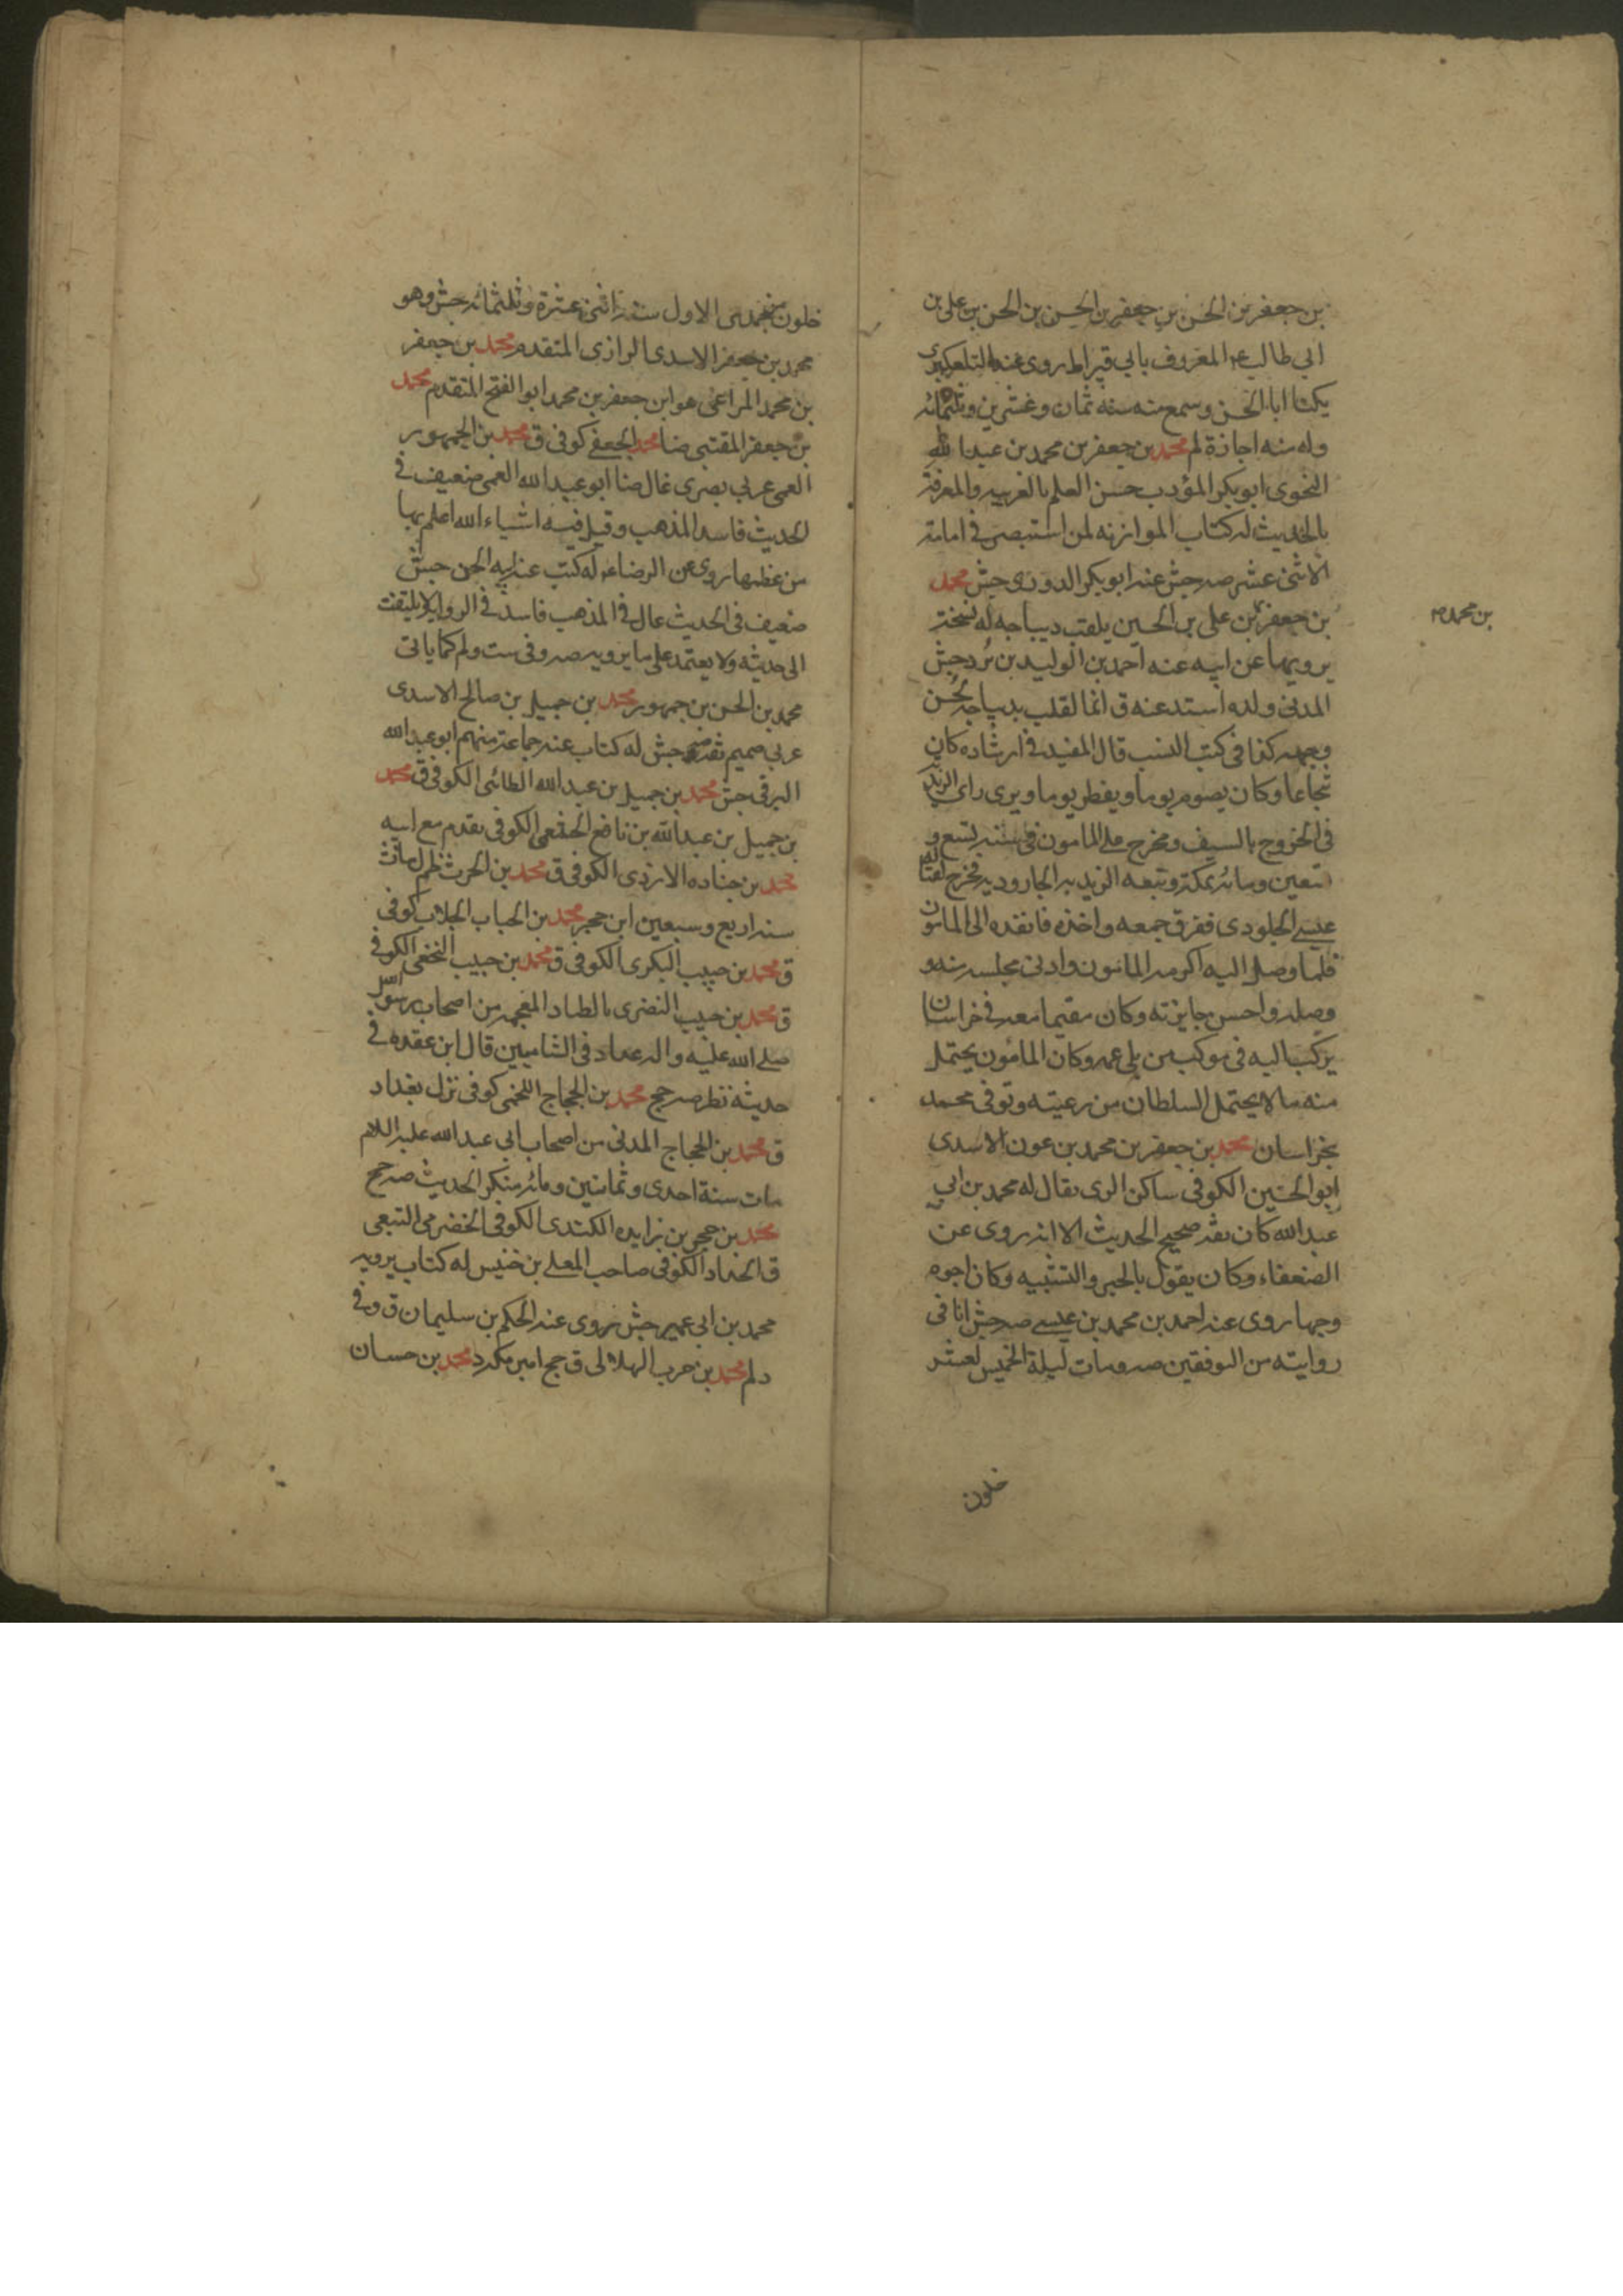 بن جعفر بن الحسن بن جعفر بن الحسن بن الحسن بن علي بن
ابي طالب ع المعروف بابي قيراط روى عنه التلعكبري
يكنا ابا الحسن وسمع منه سنه ثمان وعشرين وثلثمائه
وله منه اجازة لم محمد بن جعفر بن محمد بن عبد الله
النحوى ابو بكر المؤدب حسن العلم بالعربيه والمعرفة
بالحديث له كتاب الموازنه لمن استبصر فى امامة
الاثنى عشر صه جش عنه ابو بكر الدورى جش محمد
بن جعفر بن على بن الحسين يلقب ديباجه له نسخة
بن محمد م
يرويها عن ابيه عنه احمد بن الوليد بن برد جش
المدنى ولده اسند عنه ق انما لقب بديباجه لحسن
وجهه كذا فى كتب النسب قال المفيد فى ارشاده كان
شجاعا وكان يصوم يوما ويفطر يوما ويرى راى الزيديه
فى الخروج بالسيف وخرج على المامون فى سنه تسع و
تسعين ومائه بمكة وتبعه الزيديه الجاروديه فخرج لقتاله
عيسى الجلودى ففرق جمعه واخذه فانفذه الى المامون
فلما وصل اليه اكرمه المامون وادنى مجلسه منه و
وصله واحسن جايزته وكان مقيما معه فى خراسان
يركب اليه فى موكب من بني عمه وكان المامون يحتمل
منه ما لا يحتمل السلطان من رعيته وتوفى محمد
بخراسان محمد بن جعفر بن محمد بن عون الاسدى
ابو الحسين الكوفى ساكن الرى يقال له محمد بن ابي
عبد الله كان ثقه صحيح الحديث الا انه روى عن
الضعفاء وكان يقول بالجبر والتشبيه وكان ابوه
وجها روى عنه احمد بن محمد بن عيسى صه جش انا فى
روايته من الموقفين صه ومات ليلة الخميس لعشر
خلون
خلون من جمدى الاول سنه اثنى عشرة وثلثمائه جش وهو
محمد بن جعفر الاسدى الرازى المتقدم محمد بن جعفر
بن محمد المراغى هو ابن جعفر بن محمد ابو الفتح المتقدم محمد
بن جعفر المقتبى ضا محمد الجعفى كوفى ق محمد بن الجمهور
العمى عربي بصرى غال ضا ابو عبد الله العمى ضعيف فى
الحديث فاسد المذهب وقيل فيه اشياء الله اعلم بها
من عظمها روى عن الرضا ع له كتب عنه ابنه الحسن جش
ضعيف فى الحديث غال فى المذهب فاسد فى الرواية لا يلتفت
الى حديثه ولا يعتمد على ما يرويه صه وفى ست ولم كما ياتى
محمد بن الحسن بن جمهور محمد بن جميل بن صالح الاسدى
عربي صميم ثقه صه جش له كتاب عنه جماعة منهم ابو عبد الله
البرقى جش محمد بن جميل بن عبد الله الطائى الكوفى ق محمد
بن جميل بن عبد الله بن نافع الخثعمى الكوفى تقدم مع ابيه
محمد بن جناده الازدى الكوفى ق محمد بن الحرث ظلم مات
سنه اربع وسبعين ابن حجر محمد بن الحباب الجلاب كوفى
ق محمد بن حبيب البكرى الكوفى ق محمد بن حبيب النخعى الكوفى
ق محمد بن حبيب النضرى بالضاد المعجمه من اصحاب رسول الله
صلى الله عليه واله عداده فى الشاميين قال ابن عقده فى
حديثه نظر صه جخ محمد بن الحجاج اللخمى كوفى نزل بغداد
ق محمد بن الحجاج المدنى من اصحاب ابى عبد الله عليه السلام
مات سنة احدى وثمانين ومائه منكر الحديث صه جخ
محمد بن حجر بن زايده الكندى الكوفى الحضرمى التبعى
ق الحداد الكوفى صاحب المعلى بن خنيس له كتاب يرويه
محمد بن ابى عمير جش روى عنه الحكم بن سليمان ق وفى
د لم محمد بن حرب الهلالى ق جخ امير مكه د محمد بن حسان